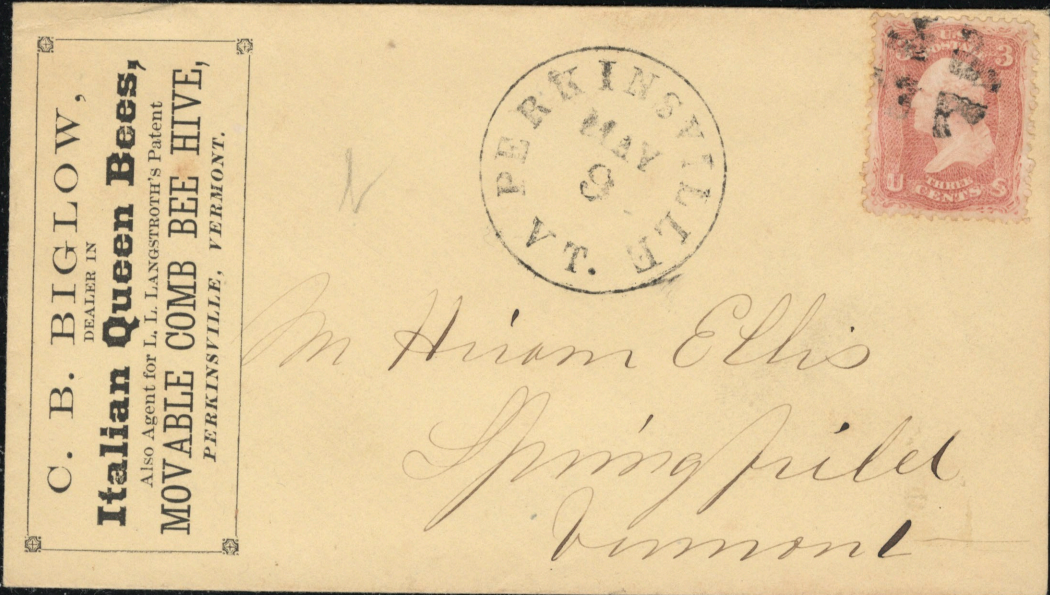 C. B. BIGLOW,
DEALER IN
Italian Queen Bees,
Also Agent for L. L. LANGSTROTH'S Patent
MOVABLE COMB BEE HIVE,
PERKINSVILLE, VERMONT.
PERKINSVILLE VT.
MAY
9
U.S.
POSTAGE
3 3
U S
THREE
CENTS
M Hiram Ellis
Springfield
Vermont